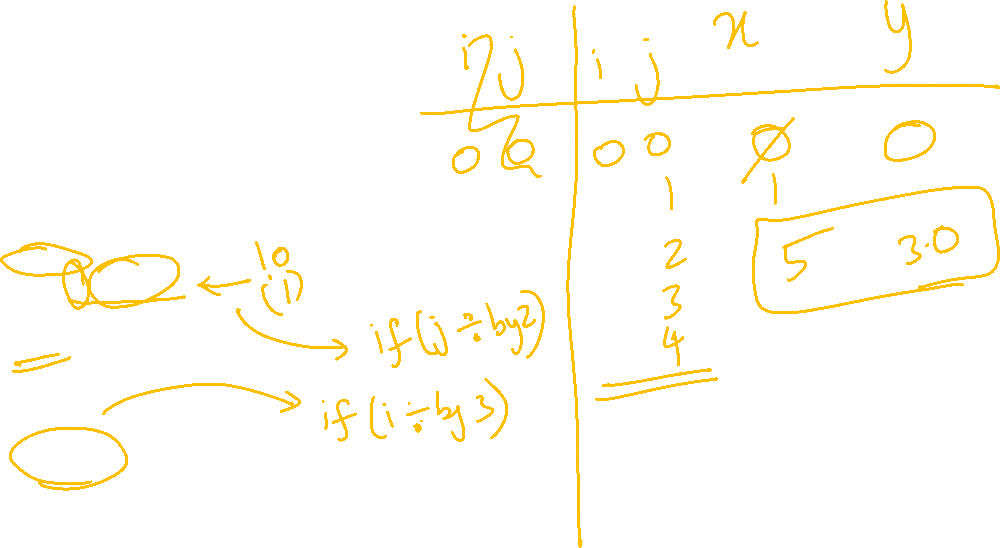 i j i j x y
0 0 0 0 0 0
1 1
2 5 3.0
3
4
10
(ii)
if (j ÷ by 2)
if (i ÷ by 3)